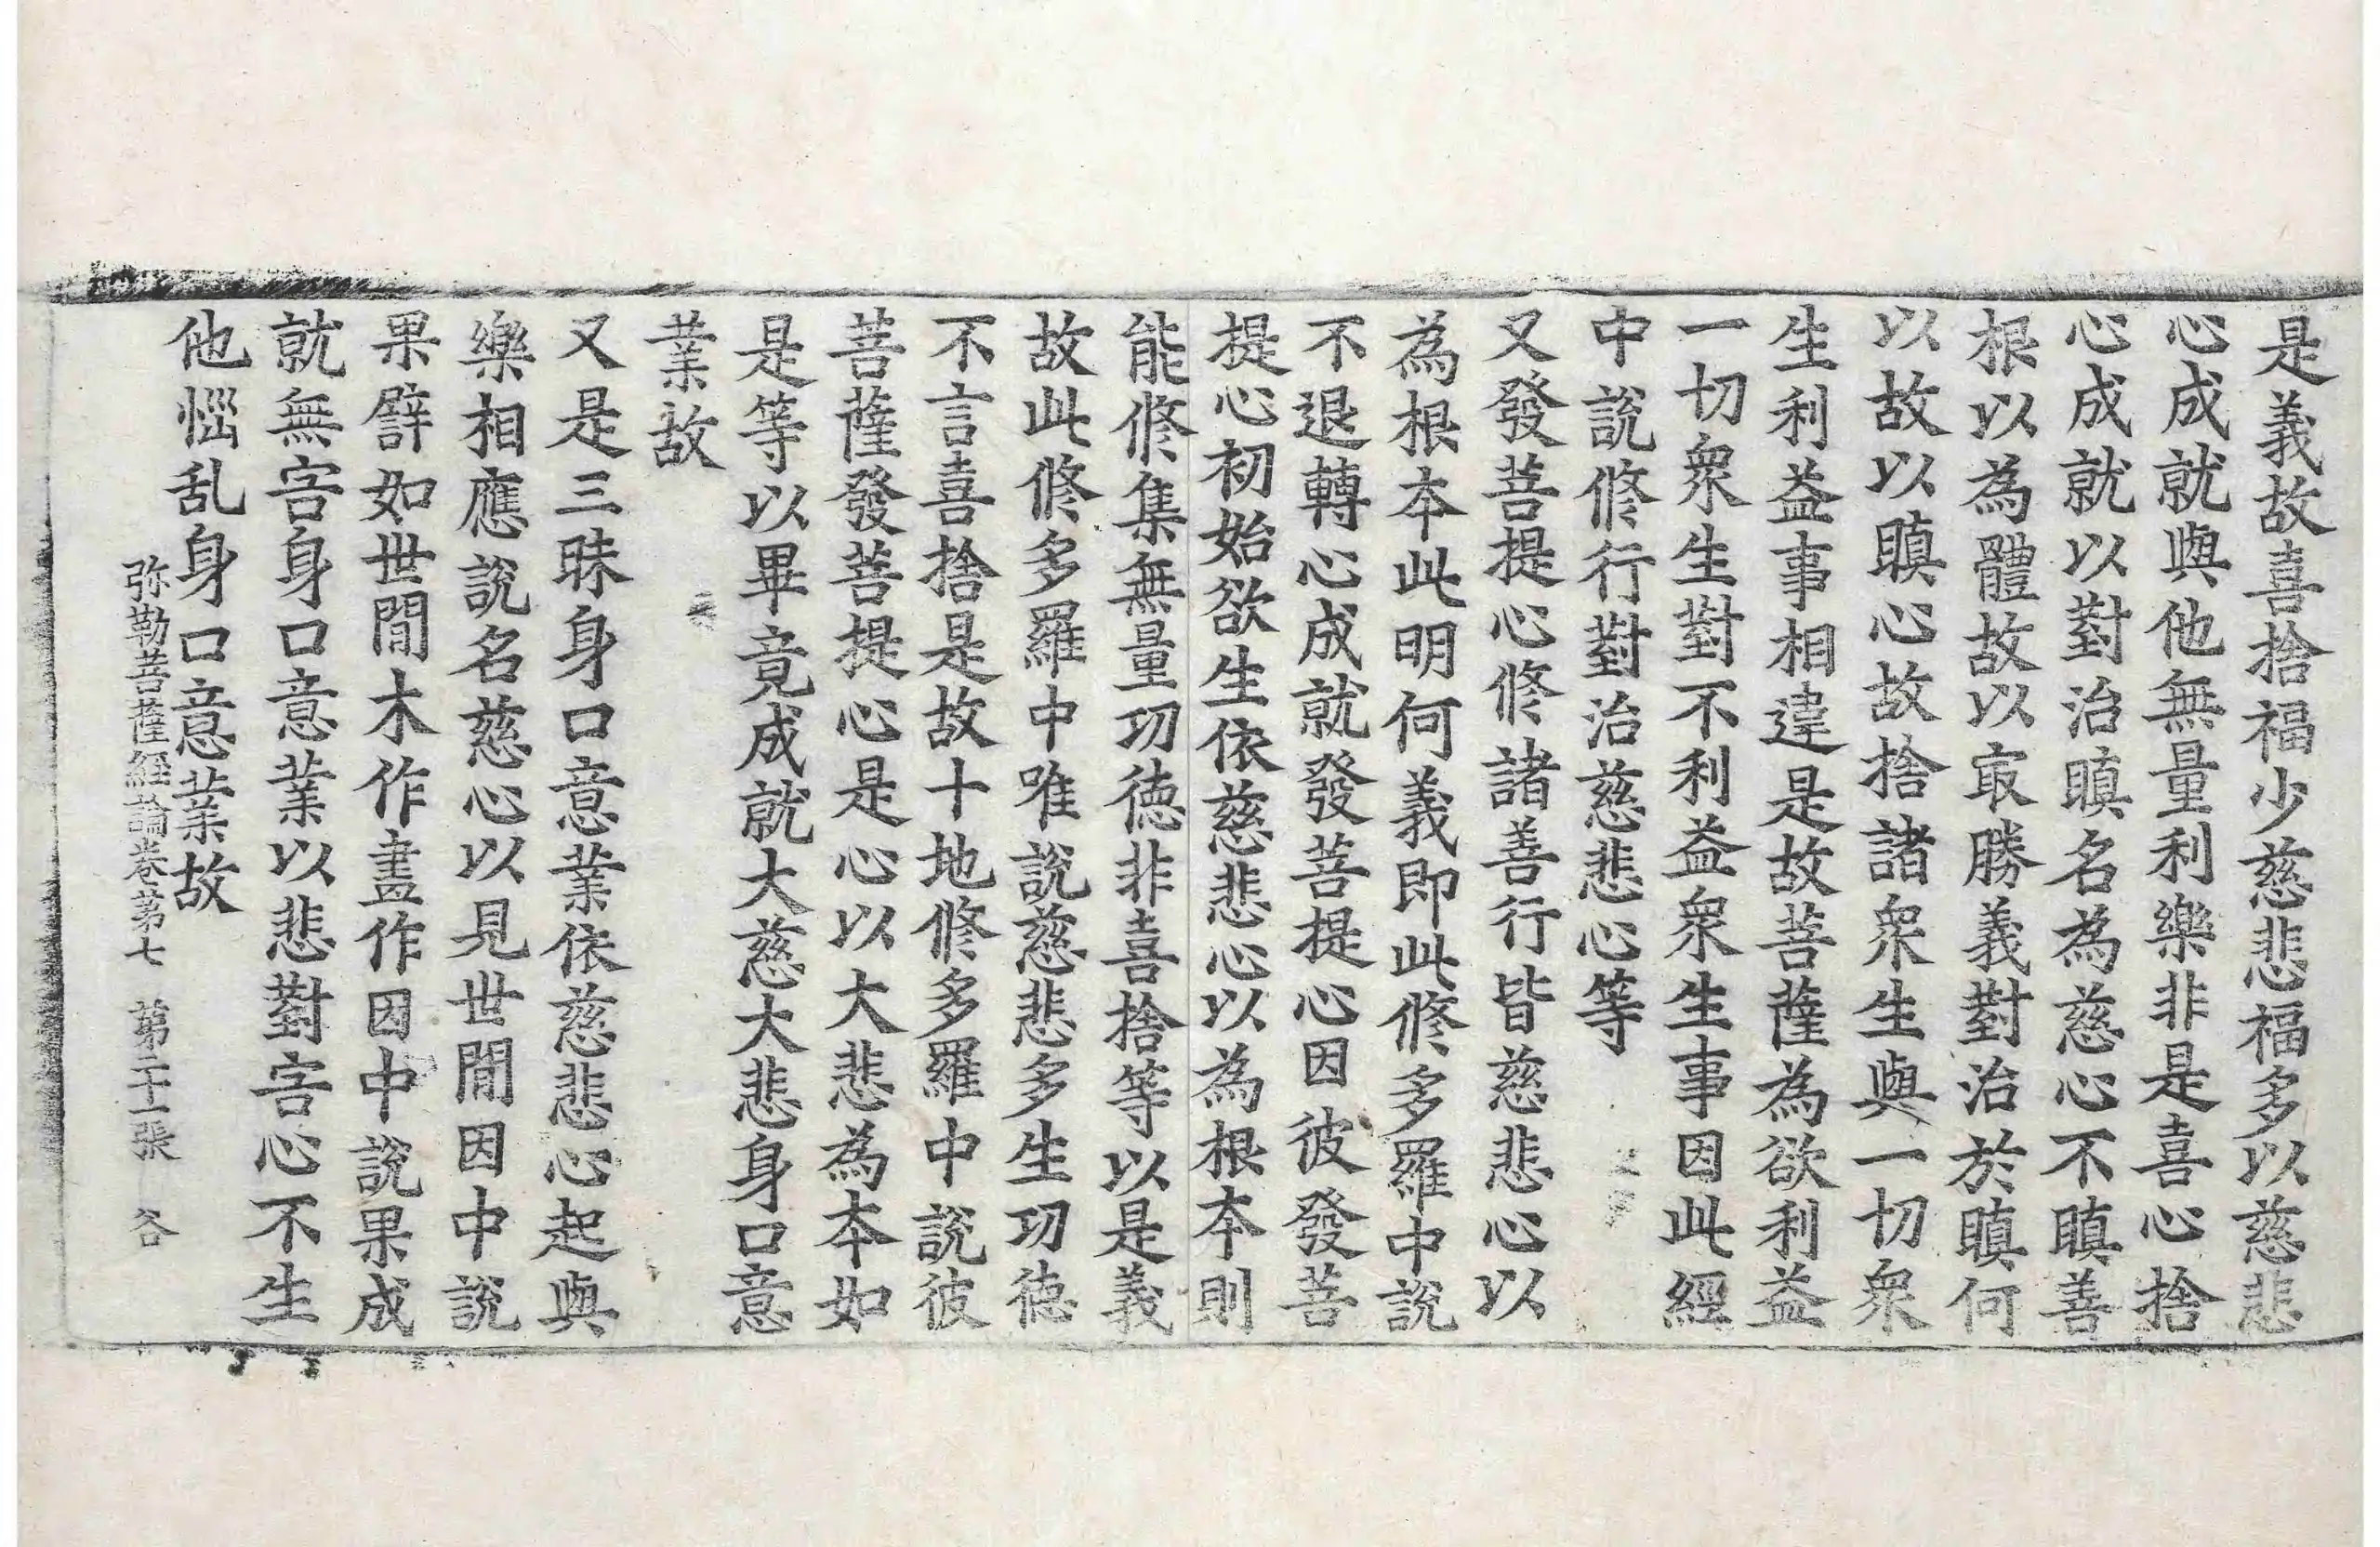 是義故喜捨福少慈悲福多以慈悲
心成就與他無量利樂非是喜心捨
心成就以對治瞋名為慈心不瞋善
根以為體故以㝡勝義對治於瞋何
以故以瞋心故捨諸衆生與一切衆
生利益事相違是故菩薩為欲利益
一切衆生對不利益衆生事因此經
中說修行對治慈悲心等
又發菩提心修諸善行皆慈悲心以
為根本此明何義即此修多羅中說
不退轉心成就發菩提心因彼發菩
提心初始欲生依慈悲心以為根本則
能修集無量功德非喜捨等以是義
故此修多羅中唯說慈悲多生功德
不言喜捨是故十地修多羅中說彼
菩薩發菩提心是心以大悲為本如
是等以畢竟成就大慈大悲身口意
業故
又是三昧身口意業依慈悲心起與
樂相應說名慈心以見世間因中說
果譬如世間木作盡作因中說果成
就無害身口意業以悲對害心不生
他惱乱身口意業故
弥勒菩薩經論卷第七 第二十一張 谷